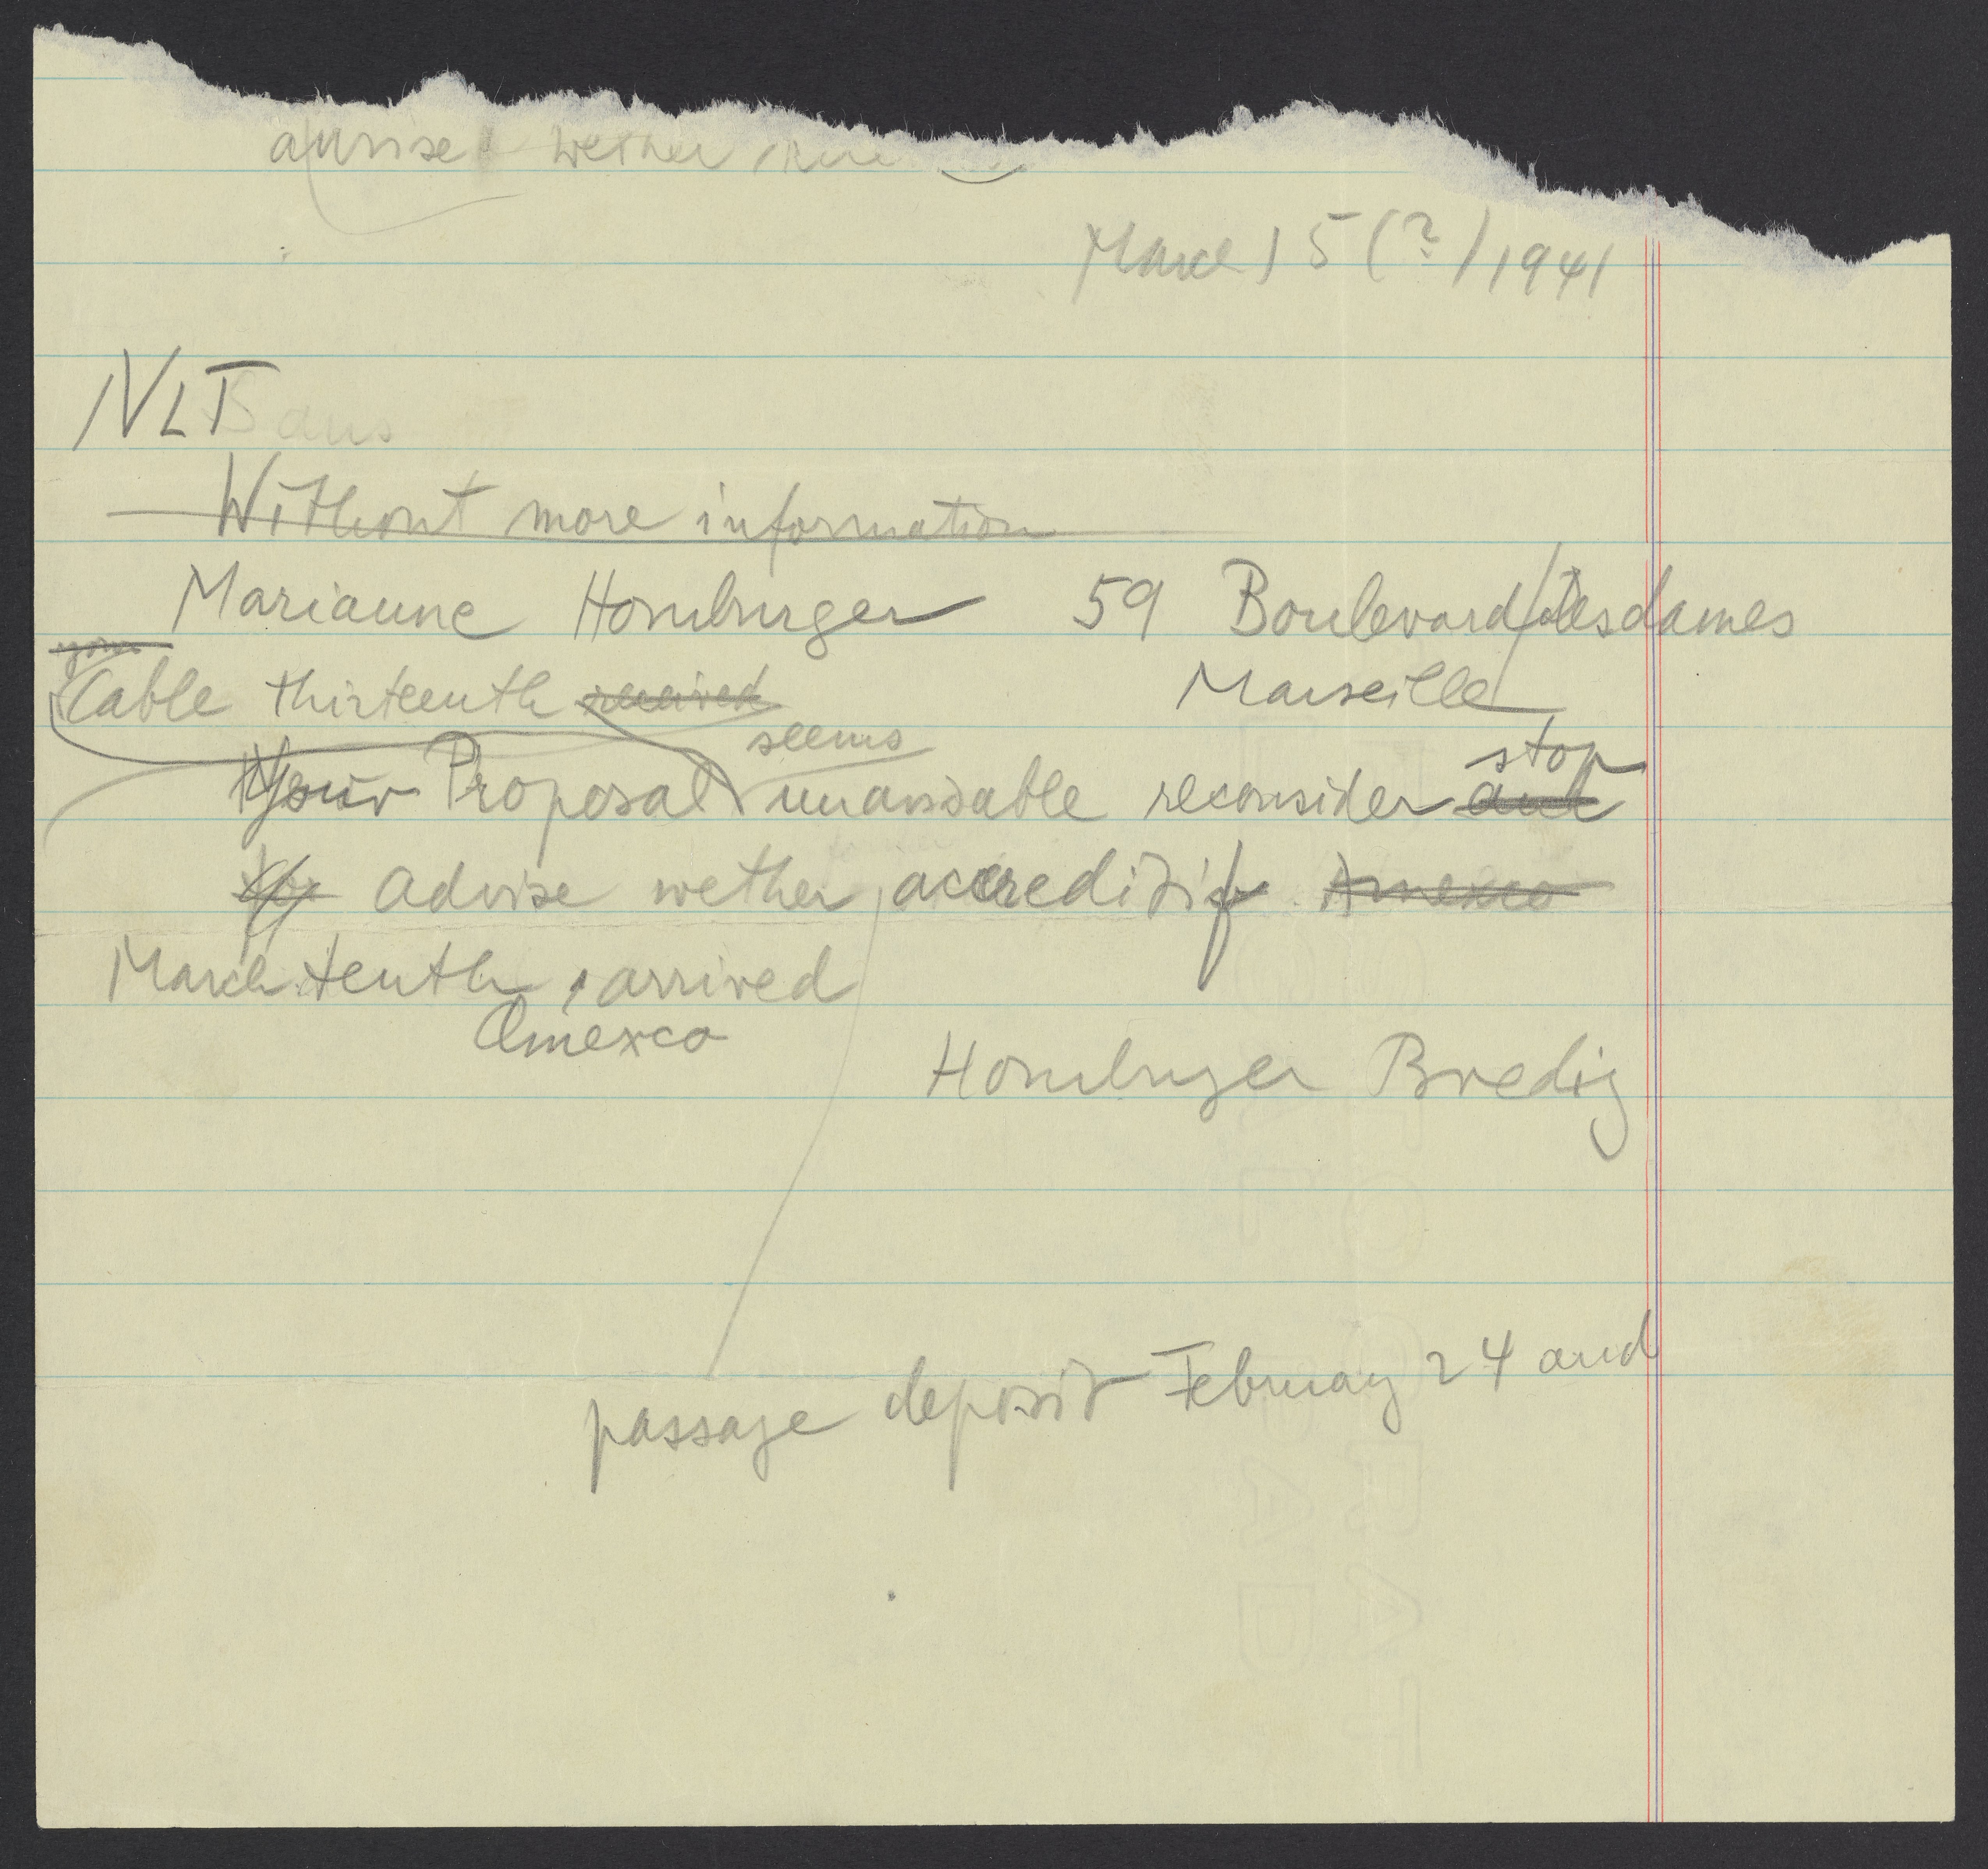 advise wether
March 15 (?) 1941
NLT
Without more information
Marianne Homburger 59 Boulevard desdames
your
Cable thirteenth received Marseille
seems stop
Your Proposal unansable reconsider and
advise wether accreditif Amexco
March tenth arrived
Amexco
Homburger Bredig
passage deposit February 24 and